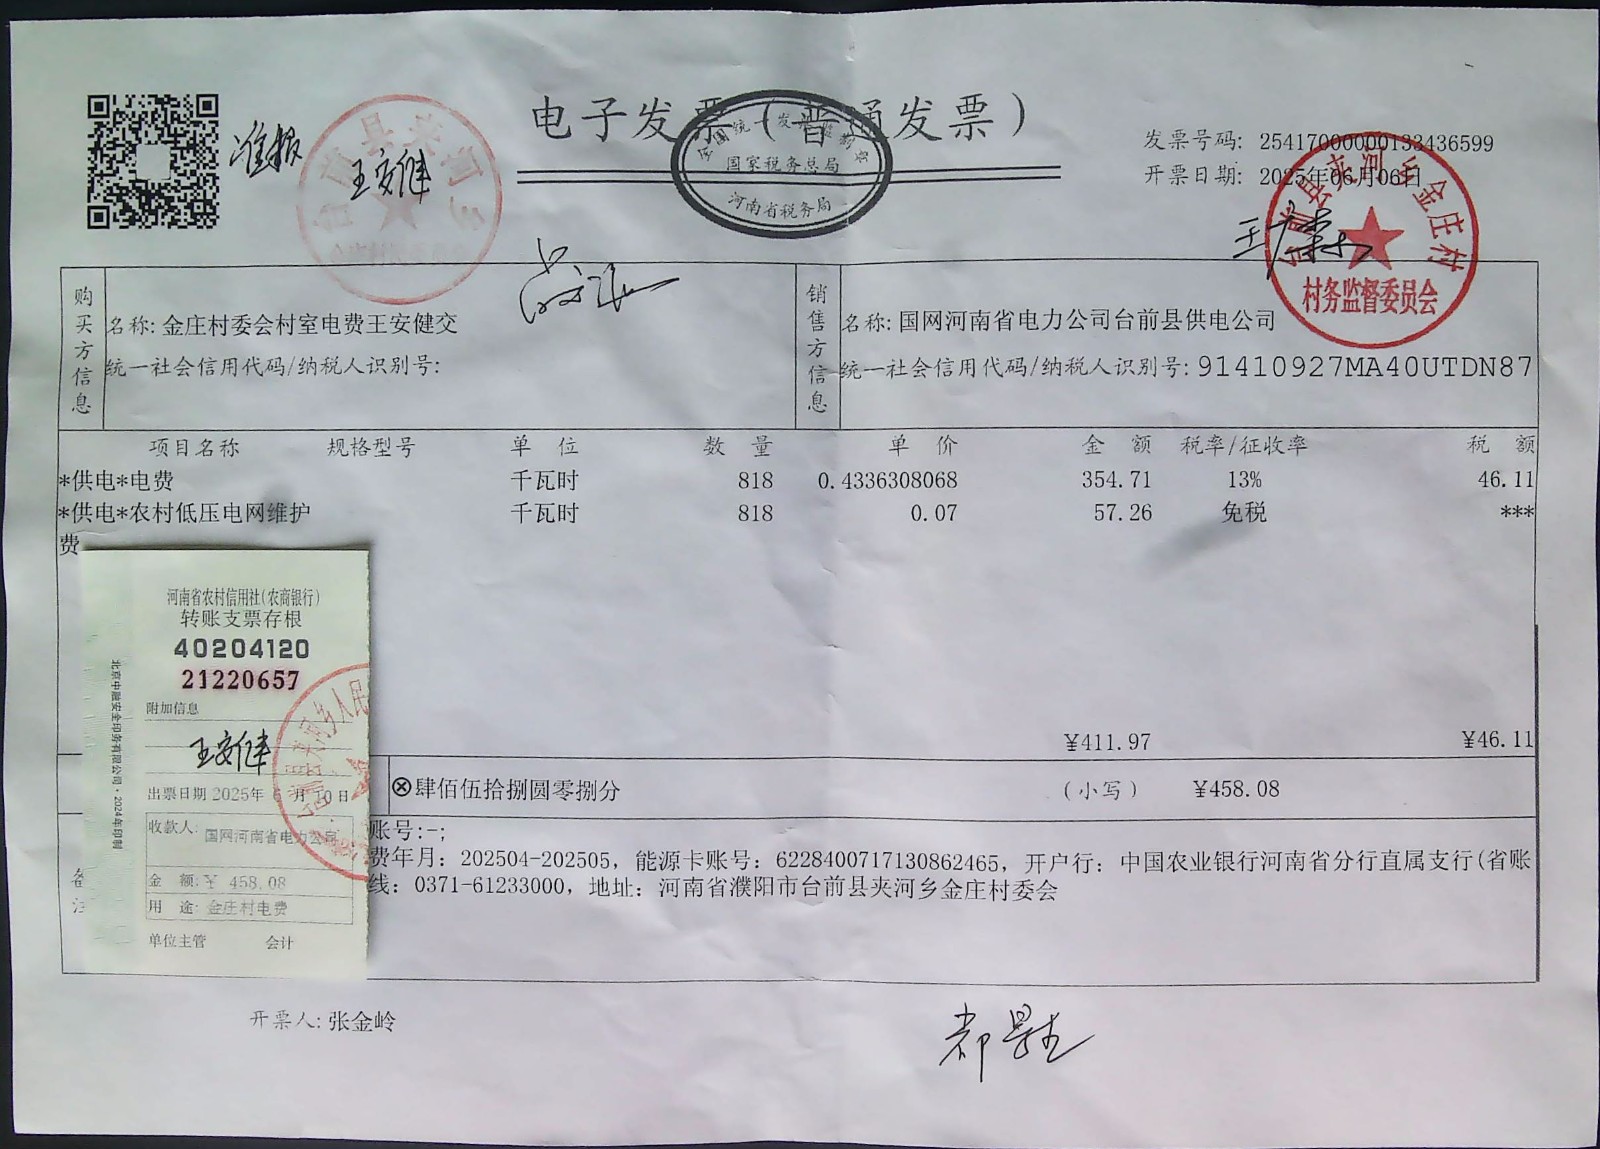 电子发票（普通发票）
全国统一发票监制章
国家税务总局
河南省税务局
发票号码: 25417000000133436599
开票日期: 2025年06月06日
准报
王安健
台前县夹河乡金庄村
村务监督委员会
购买方信息
名称: 金庄村委会村室电费王安健交
统一社会信用代码/纳税人识别号:
销售方信息
名称: 国网河南省电力公司台前县供电公司
统一社会信用代码/纳税人识别号: 91410927MA40UTDN87
项目名称 规格型号 单 位 数 量 单 价 金 额 税率/征收率 税 额
*供电*电费 千瓦时 818 0.4336308068 354.71 13% 46.11
*供电*农村低压电网维护 千瓦时 818 0.07 57.26 免税 ***
费
¥411.97 ¥46.11
⊗肆佰伍拾捌圆零捌分 (小写) ¥458.08
账号:-;
费年月: 202504-202505, 能源卡账号: 6228400717130862465, 开户行: 中国农业银行河南省分行直属支行(省账
线: 0371-61233000, 地址: 河南省濮阳市台前县夹河乡金庄村委会
备注
河南省农村信用社(农商银行)
转账支票存根
40204120
21220657
附加信息
王安健
出票日期 2025年 6月 10日
收款人: 国网河南省电力公司
金 额: ¥ 458.08
用 途: 金庄村电费
单位主管 会计
北京中融安全印务有限公司·2024年印制
开票人: 张金岭